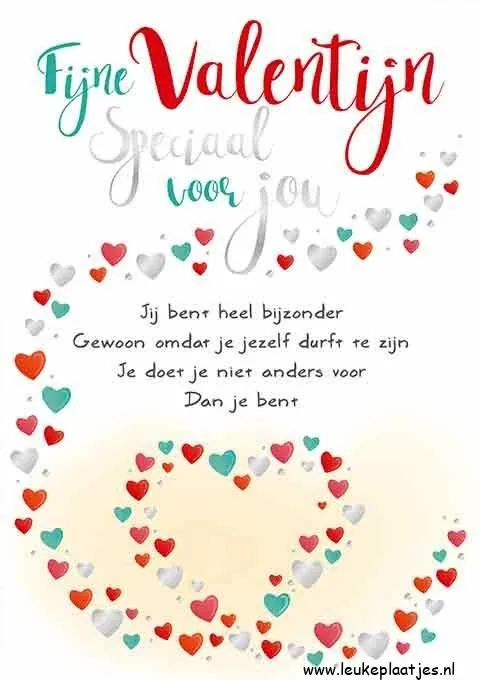 Fijne Valentijn
Speciaal
voor jou
Jij bent heel bijzonder
Gewoon omdat je jezelf durft te zijn
Je doet je niet anders voor
Dan je bent
www.leukeplaatjes.nl